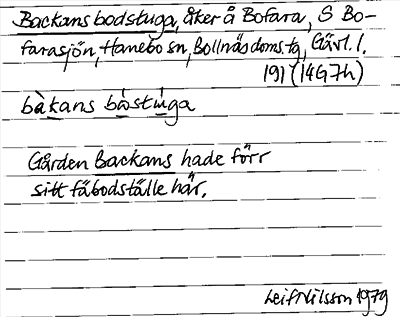 Backans bodstuga, åker å Bofara, S Bo-
farasjön, Hanebo sn, Bollnäs doms.tg, Gävl. l.
191 (14G7h)
bàkans bò̀stùga
Gården Backans hade förr
sitt fäbodställe här.
Leif Nilsson 1979